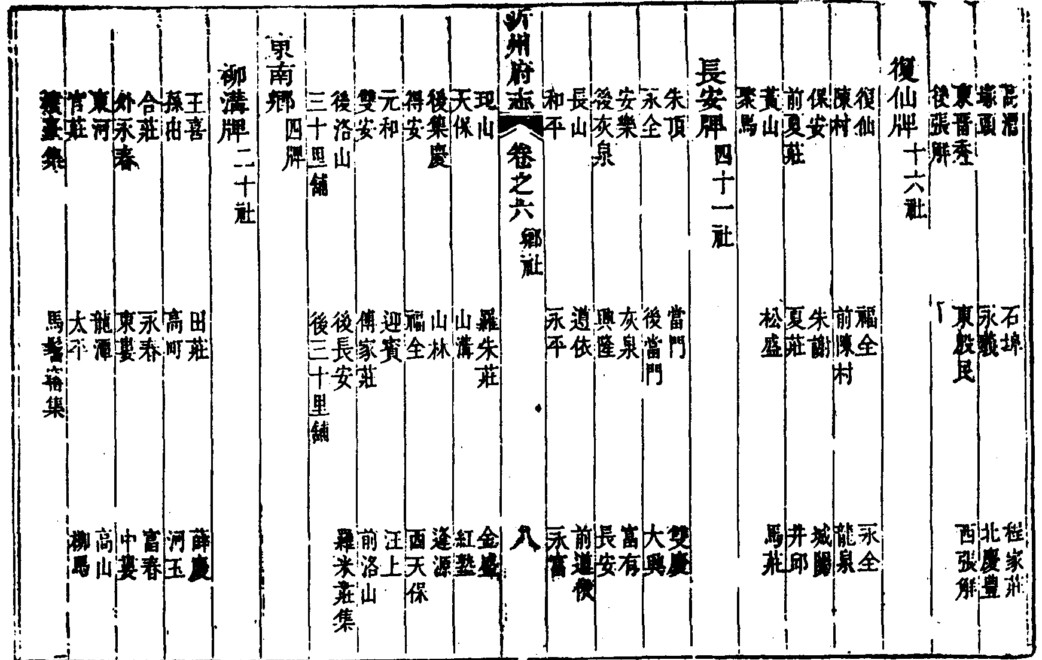 高漕　石埠　程家莊
塚頭　永義　北慶豐
東晋秀　東殷民　西張解
後張解
復仙牌十六社
復仙　福全　永全
陳村　前陳村　龍泉
保安　朱謝　城陽
前夏莊　夏莊　井邱
黃山　松盛　馬莊
梁馬
長安牌四十一社
朱頂　當門　雙慶
永全　後當門　大興
安樂　灰泉　富有
後灰泉　興隆　長安
長山　道依　前道依
和平　永平　永富
沂州府志　卷之六　鄉社　八
現山　羅朱莊　金盛
天保　山溝　紅塾
後集慶　山林　逢源
得安　福全　西天保
元和　迎賓　汪上
雙安　傅家莊　前洛山
後洛山　後長安　羅米莊集
三十里舖　後三十里舖
東南鄉四牌
柳溝牌二十社
王喜　田莊　薛慶
孫由　高町　河玉
合莊　永春　富春
外永春　東婁　中婁
東河　龍潭　高山
官莊　太平　柳馬